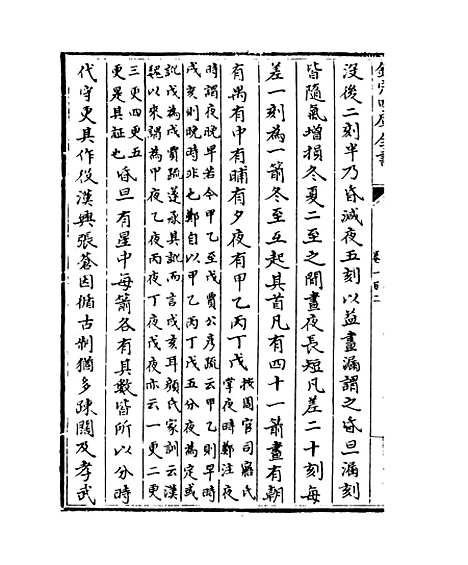 欽定四庫全書
卷一百二
没後二刻半乃昏減夜五刻以益晝漏謂之昏旦漏刻
皆隨氣增損冬夏二至之間晝夜長短凡差二十刻每
差一刻為一箭冬至互起其首凡有四十一箭晝有朝
有禺有中有晡有夕夜有甲乙丙丁戊
按周官司寤氏
掌夜時鄭注夜
時謂夜晚早若今甲乙至戊賈公彦疏云甲乙則早時
戊亥則晚時非也鄭自以甲乙丙丁戊五分夜為定或
訛戊為戌賈疏遂承其訛而言戌亥耳顔氏家訓云漢
魏以來謂為甲夜乙夜丙夜丁夜戊夜亦云一更二更
三更四更五
更是其証也
昏旦有星中每箭各有其數皆所以分時
代守更其作役漢興張蒼因循古制猶多疎闊及孝武